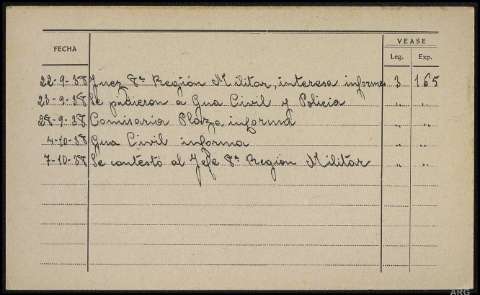 FECHA
VEASE
Leg. Exp.
22-9-38 Juez 8ª Región Militar, interesa informes 3 165
23-9-38 Se pidieron a Gua Civil y Policia " "
28-9-38 Comisaria Plaza informa " "
4-10-38 Gua Civil informa " "
7-10-38 Se contestó al Jefe 8ª Region Militar " "
ARG